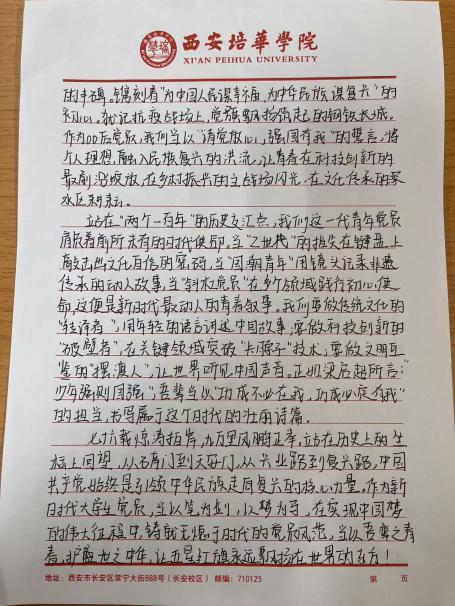 西安培華學院
XI'AN PEIHUA UNIVERSITY
的丰碑，镌刻着“为中国人民谋幸福，为中华民族谋复兴”的
初心。犹记抗疫战场上，党旗飘扬筑起的钢铁长城。
作为00后党员，我们当以“请党放心，强国有我”的誓言，将
个人理想融入民族复兴的洪流，让青春在科技创新的
最前沿绽放，在乡村振兴的主战场闪光，在文化传承的深
水区耕耘。
站在“两个一百年”的历史交汇点，我们这一代青年党员
肩负着前所未有的时代使命。当“Z世代”的指尖在键盘上
敲击出文化自信的密码，当“国潮青年”用镜头记录非遗
传承的动人故事，当“斜杠党员”在多个领域践行初心使
命，这便是新时代最动人的青春叙事。我们要做传统文化的
“转译者”，用年轻的语言讲述中国故事；要做科技创新的
“破壁者”，在关键领域突破“卡脖子”技术；要做文明互
鉴的“摆渡人”，让世界听见中国声音。正如梁启超所言：
“少年强则国强”，吾辈当以“功成不必在我，功成必定有我”
的担当，书写属于这个时代的壮丽诗篇。
七十六载惊涛拍岸，九万里风鹏正举，立在历史上的坐
标上回望，从石库门到天安门，从兴业路到复兴路，中国
共产党始终是引领中华民族走向复兴的核心力量。作为新
时代大学生党员，当以笔为剑，以梦为马，在实现中国梦
的伟大征程中，铸就无愧于时代的党员风范，当以吾辈之青
春，护盛世之中华，让五星红旗永远飘扬在世界的东方！
地址：西安市长安区常宁大街888号（长安校区） 邮编：710125 第 页